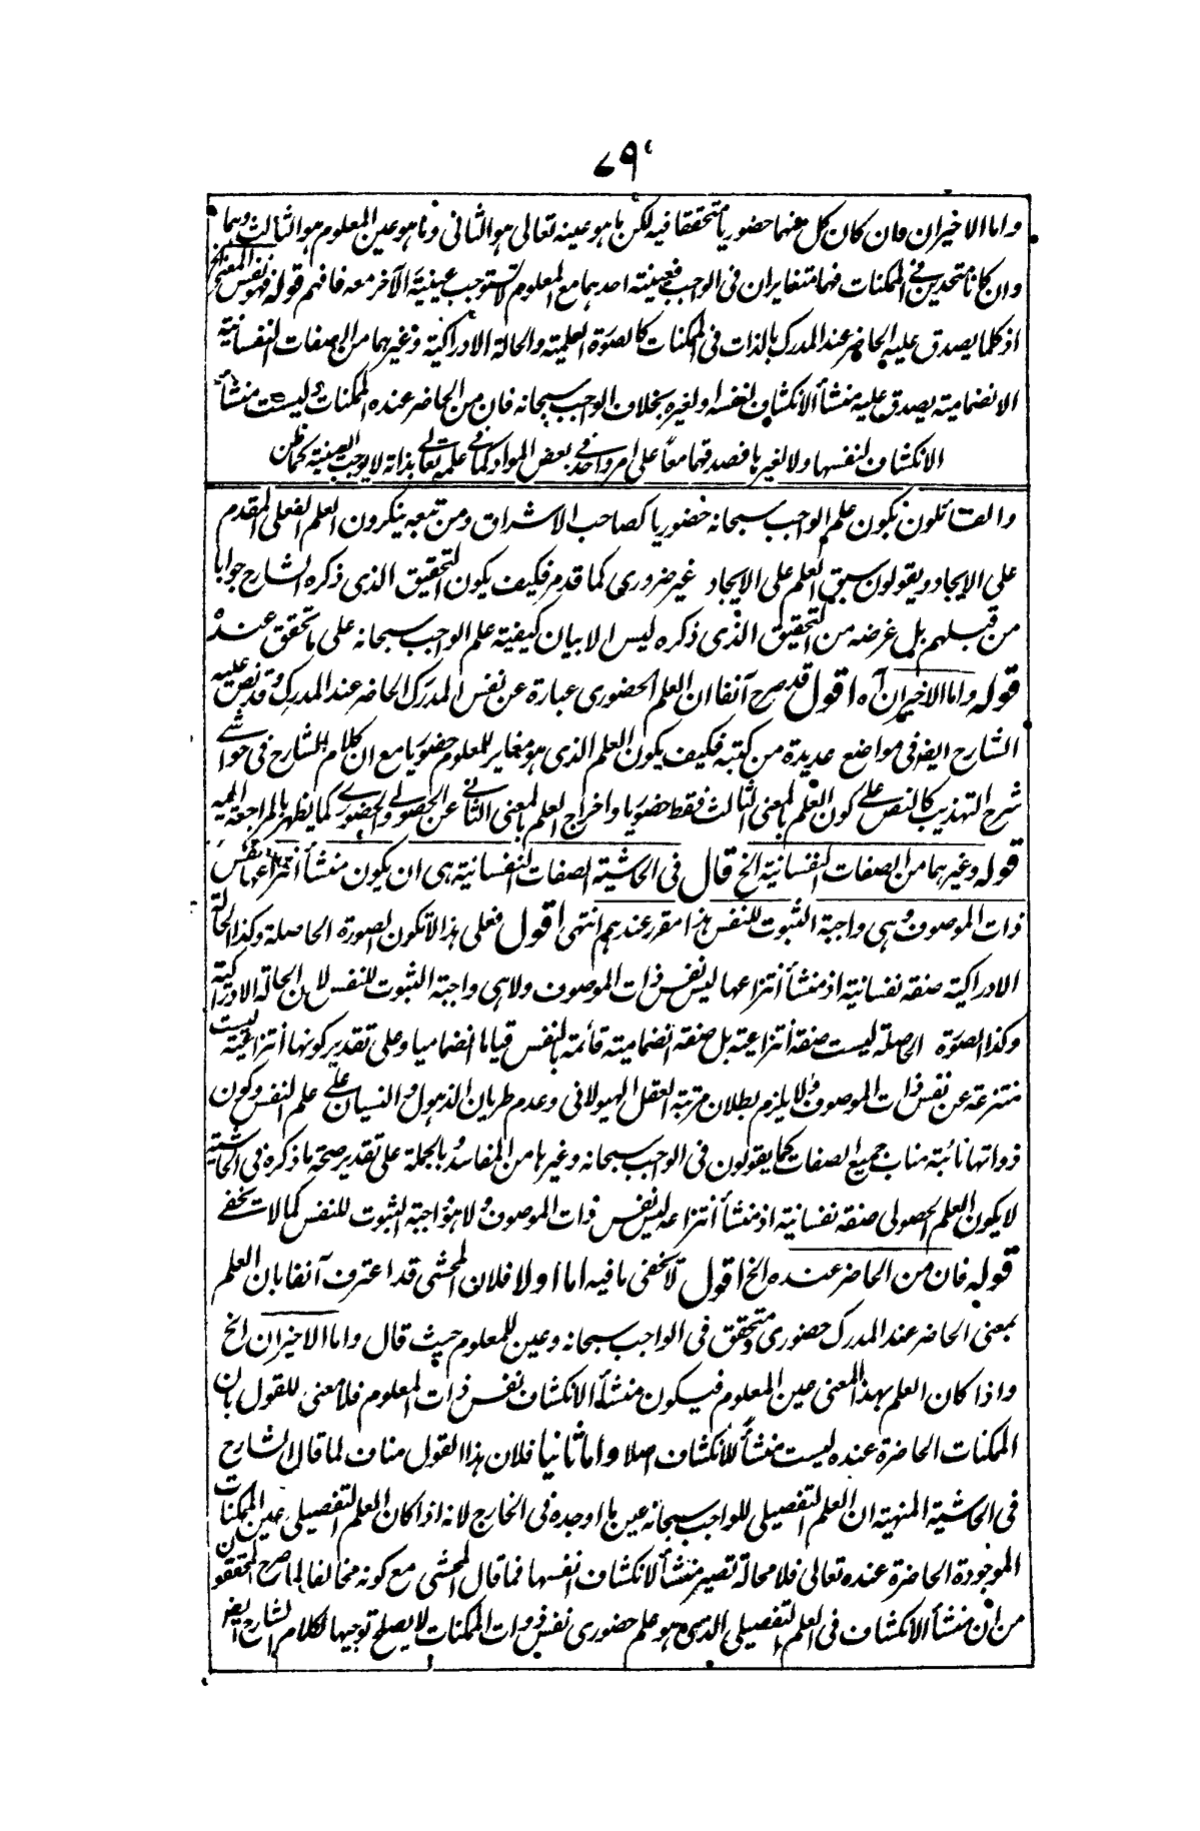 ٧٩
واما الاخيران فان كان كل منهما حضوريا متحققا فيه لكن ما هو عينه تعالى هو الثانى وما هو عين المعلوم هو الثالث وهما
وان كانا متحدين فى الممكنات فهما متغايران فى الواجب فعينية احدهما مع المعلوم لا تستوجب عينية الآخر معه فافهم قوله فهو نفس المعنى الخ
اذ كلما يصدق عليه الحاضر عند المدرك بالذات فى الممكنات كالصورة العلمية والحالة الادراكية وغيرهما من الصفات النفسانية
الانضمامية يصدق عليه منشأ الانكشاف لنفسه او لغيره بخلاف الواجب سبحانه فان من الحاضر عنده الممكنات وليست منشأ
الانكشاف لنفسها ولا لغيرها فصدقهما معا على امر واحد فى بعض المواد كما فى علمه تعالى بذاته لا يوجب العينية كما ظن
والقائلون بكون علم الواجب سبحانه حضوريا كصاحب الاشراق ومن تبعه ينكرون العلم الفعلى المقدم
على الايجاد ويقولون سبق العلم على الايجاد غير ضرورى كما قدم فكيف يكون التحقيق الذى ذكره الشارح جوابا
من قبلهم بل غرضه من التحقيق الذى ذكره ليس الا بيان كيفية علم الواجب سبحانه على ما تحقق عنده
قوله واما الاخيران آه اقول قد صرح آنفا ان العلم الحضورى عبارة عن نفس المدرك الحاضر عند المدرك وقد نص عليه
الشارح ايضا فى مواضع عديدة من كتبه فكيف يكون العلم الذى هو مغاير للمعلوم حضوريا مع ان كلام الشارح فى حواشى
شرح التهذيب كالنص على كون العلم بالمعنى الثالث فقط حضوريا واخراج العلم بالمعنى الثانى عن الحصولى والحضورى كما يظهر بالمراجعة اليه
قوله وغيرهما من الصفات النفسانية الخ قال فى الحاشية الصفات النفسانية هى ان يكون منشأ انتزاعها نفس
ذات الموصوف وهى واجبة الثبوت للنفس هذا مقرر عندهم انتهى اقول فعلى هذا لا تكون الصورة الحاصلة وكذا الحالة
الادراكية صفة نفسانية اذ منشأ انتزاعها ليس نفس ذات الموصوف ولا هى واجبة الثبوت للنفس لان الحالة الادراكية
وكذا الصورة الحاصلة ليست صفة انتزاعية بل صفة انضمامية قائمة بالنفس قياما انضماميا وعلى تقدير كونها انتزاعية ليست
منتزعة عن نفس ذات الموصوف والا يلزم بطلان مرتبة العقل الهيولانى وعدم طريان الذهول والنسيان على علم النفس وكون
ذواتها نائبة مناب جميع الصفات كما يقولون فى الواجب سبحانه وغيرها من المفاسد وبالجملة على تقدير صحة ما ذكره فى الحاشية
لا يكون العلم الحصولى صفة نفسانية اذ منشأ انتزاعه ليس نفس ذات الموصوف ولا هو واجبة الثبوت للنفس كما لا يخفى
قوله فان من الحاضر عنده الخ اقول لا يخفى ما فيه اما اولا فلان المحشى قد اعترف آنفا بان العلم
بمعنى الحاضر عند المدرك حضورى ومتحقق فى الواجب سبحانه وعين للمعلوم حيث قال واما الاخيران الخ
واذا كان العلم بهذا المعنى عين المعلوم فيكون منشأ الانكشاف نفس ذات المعلوم فلا معنى للقول بان
الممكنات الحاضرة عنده ليست منشأ للانكشاف اصلا واما ثانيا فلان هذا القول مناف لما قال الشارح
فى الحاشية المنهية ان العلم التفصيلى للواجب سبحانه عين ما اوجده فى الخارج لانه اذا كان العلم التفصيلى عين الممكنات
الموجودة الحاضرة عنده تعالى فلا محالة تصير منشأ لانكشاف انفسها فما قال المحشى مع كونه مخالفا لما صرح المحققون
من ان منشأ الانكشاف فى العلم التفصيلى الذى هو علم حضورى نفس ذوات الممكنات لا يصلح توجيها لكلام الشارح ايضا